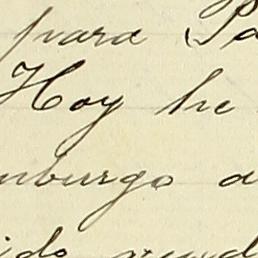 para Pa
Hoy he
nburgo a
ido